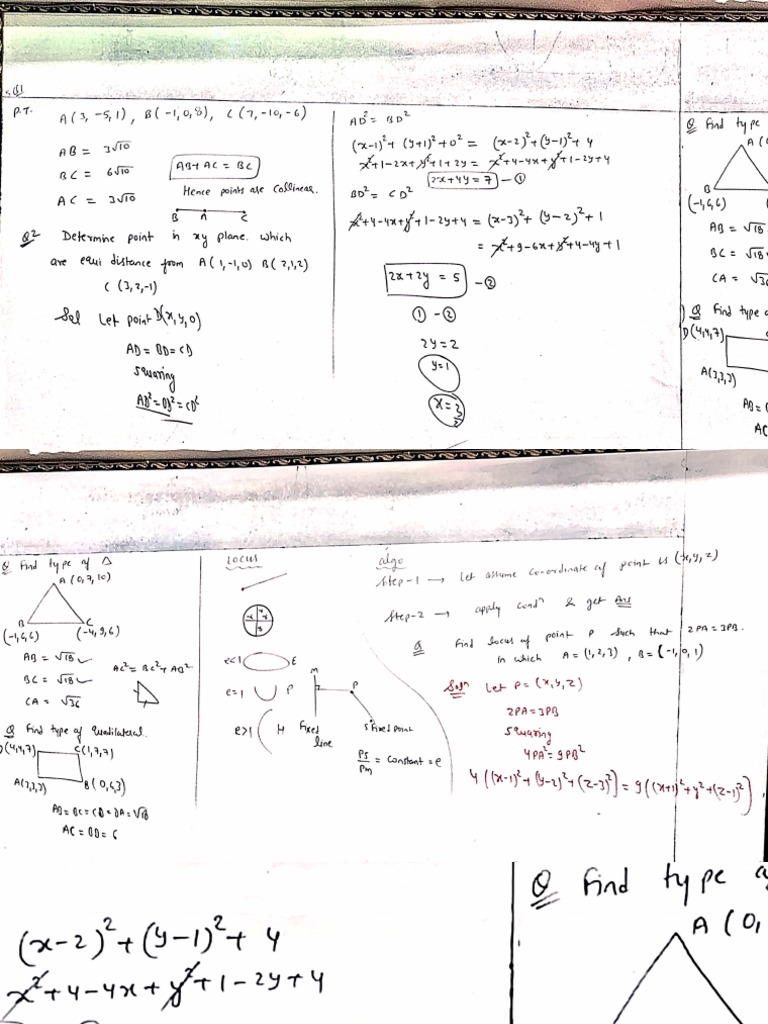 Q1
P.T. A(3, -5, 1), B(-1, 0, 8), C(7, -10, -6)
AB = 3√10
BC = 6√10
AC = 3√10
AB + AC = BC
Hence points are collinear.
B A C
Q2 Determine point in xy plane which
are equi distance from A(1,-1,0) B(2,1,2)
C(3,2,-1)
Sol Let point D(x,y,0)
AD = BD = CD
Squaring
AD² = BD² = CD²
AD² = BD²
(x-1)² + (y+1)² + 0² = (x-2)² + (y-1)² + 4
x²+1-2x+y²+1+2y = x²+4-4x+y²+1-2y+4
2x+4y = 7 - ①
BD² = CD²
x²+4-4x+y²+1-2y+4 = (x-3)² + (y-2)² + 1
= x²+9-6x+y²+4-4y+1
2x+2y = 5 - ②
① - ②
2y = 2
y=1
x = 3/2
Q Find type
A(
B
(-1,6,6)
AB = √18
BC = √18
CA = √36
Q Find type
D(4,4,7)
A(3,3,3)
AB =
AC
Q Find type of Δ
A(0,7,10)
B C
(-1,6,6) (-4,9,6)
AB = √18 ✓
BC = √18 ✓
CA = √36
AC² = BC² + AB²
Q Find type of Quadilateral.
D(4,4,7) C(1,7,7)
A(3,3,3) B(0,6,3)
AB = BC = CD = DA = √18
AC = BD = 6
Locus
e<1 E
e=1 P
e>1 H
M P
Fixed line
S Fixed point
PS/PM = constant = e
algo
Step-1 → Let assume co-ordinate of point is (x,y,z)
Step-2 → apply condⁿ & get Ans
Q Find locus of point P such that 2PA = 3PB.
in which A = (1,2,3) , B = (-1,0,1)
Solⁿ Let P = (x,y,z)
2PA = 3PB
Squaring
4PA² = 9PB²
4((x-1)² + (y-2)² + (z-3)²) = 9((x+1)² + y² + (z-1)²)
(x-2)² + (y-1)² + 4
x²+4-4x+y²+1-2y+4
Q Find type
A(0,